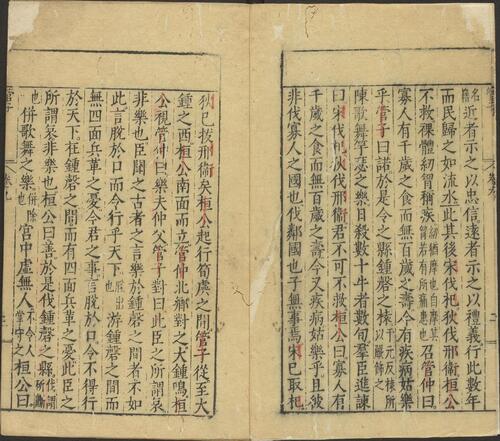 近者示之以忠信遠者示之以禮義行此數年
而民歸之如流水此其後宋伐杞狄伐邢衛桓公
不救裸體紉胷稱疾紉猶摩也自摩其胷若有所痛患也召管仲曰
寡人有千歲之食而無百歲之壽今有疾病姑樂
乎管子曰諾於是令之縣鍾磬之榬所以嚴飾之
陳歌舞竽瑟之樂日殺數十牛者數旬羣臣進諫
曰宋伐杞狄伐邢衛君不可不救桓公曰寡人有
千歲之食而無百歲之壽今又疾病姑樂乎且彼
非伐寡人之國也伐鄰國也子無事焉宋已取杞
狄已拔邢衛矣桓公起行筍虡之間管子從至大
鍾之西桓公南面而立管仲北鄉對之大鍾鳴桓
公視管仲曰樂夫仲父管子對曰此臣之所謂哀
非樂也臣聞之古者之言樂於鍾磬之間者不如
此言脫於口而令行乎天下脫出也游鍾磬之間而
無四面兵革之憂今君之事言脫於口令不得行
於天下在鍾磬之間而有四面兵革之憂此臣之
所謂哀非樂也桓公曰善於是伐鍾磬之縣伐謂斫斷也
併歌舞之樂併除也宮中虛無人不令人掌守之桓公曰